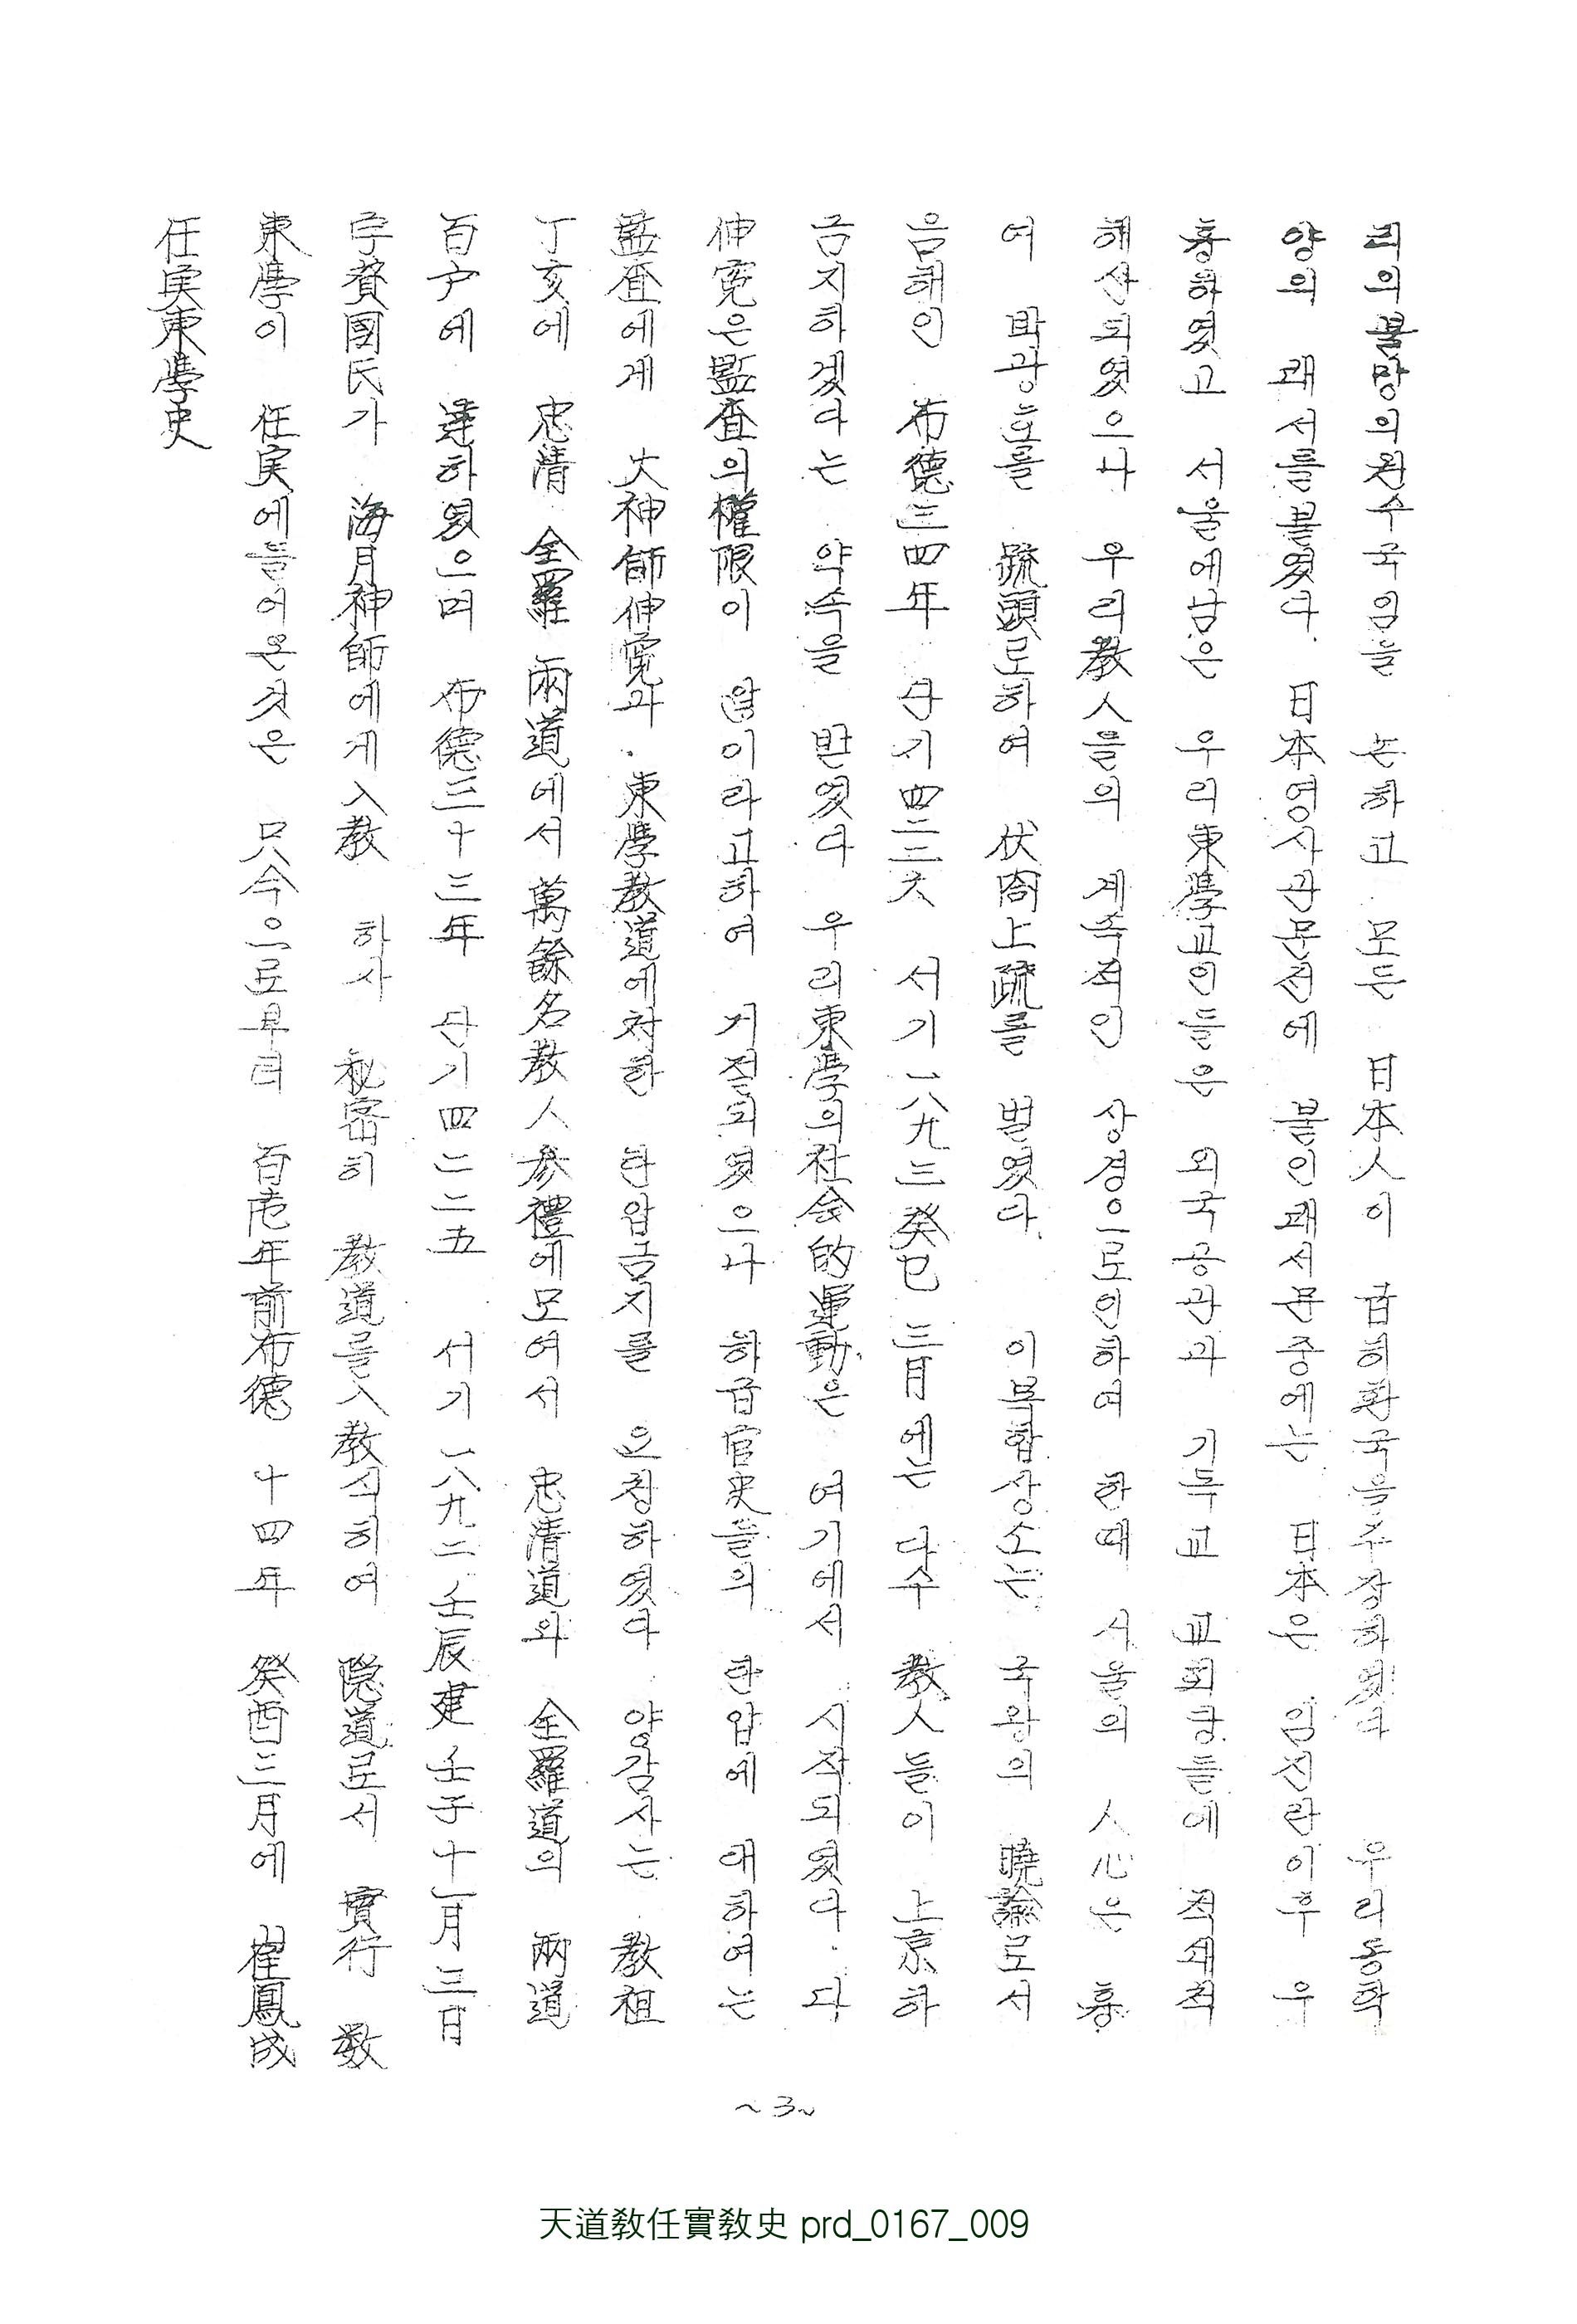 任実東學史
東學이 任実에들어온것은 只今으로부터 百壱年前布德 十四年 癸酉三月에 崔鳳成
字贊國民가 海月神師에게入教 하사 秘密히 教道를入教식히여 隠道로서 實行 数
百戶에 達하였으며 布德三十三年 단기四二二五 서기一八九二壬辰建壬子十一月三日
丁亥에 忠清 全羅 兩道에서 萬餘名教人参禮에모여서 忠清道와 全羅道의 兩道
監査에게 大神師伸寃과. 東學教道에対한 탄압금지를 요청하였다 양감사는 教祖
伸寃은監査의權限이 않이라고하여 거절되였으나 하급官吏들의 탄압에 대하여는
금지하겠다는 약속을 받였다 우리東學의社会的運動은 여기에서 시작되였다. 다
음해인 布德三四年 단기四二二六 서기一八九三癸巳三月에는 다수 教人들이 上京하
여 박광호를 疏頭로하여 伏閤上疏를 벌였다. 이복합상소는 국왕의 曉諭로서
해산되였으나 우리教人들의 계속적인 상경으로인하여 한때 서울의 人心은 흉
흉하였고 서울에남은 우리東學교인들은 외국공관과 기독교 교회당들에 척왜척
양의 괘서를붙였다. 日本영사관문전에 붙인괘서문중에는 日本은 임진란이후 우
리의불망의원수국임을 논하고 모든 日本人이 급히환국을주장하였다 우리동학
~3~
天道敎任實敎史 prd_0167_009